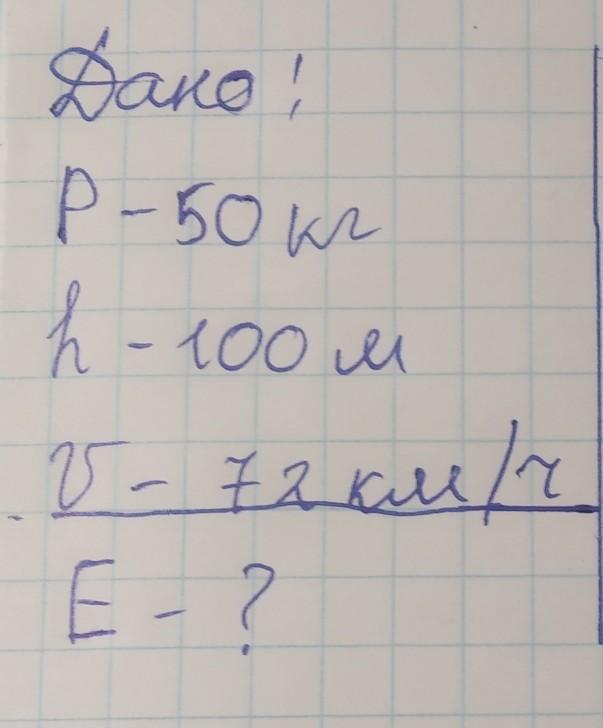 Дано!
P - 50 кг
h - 100 м
V - 72 км/ч
E - ?